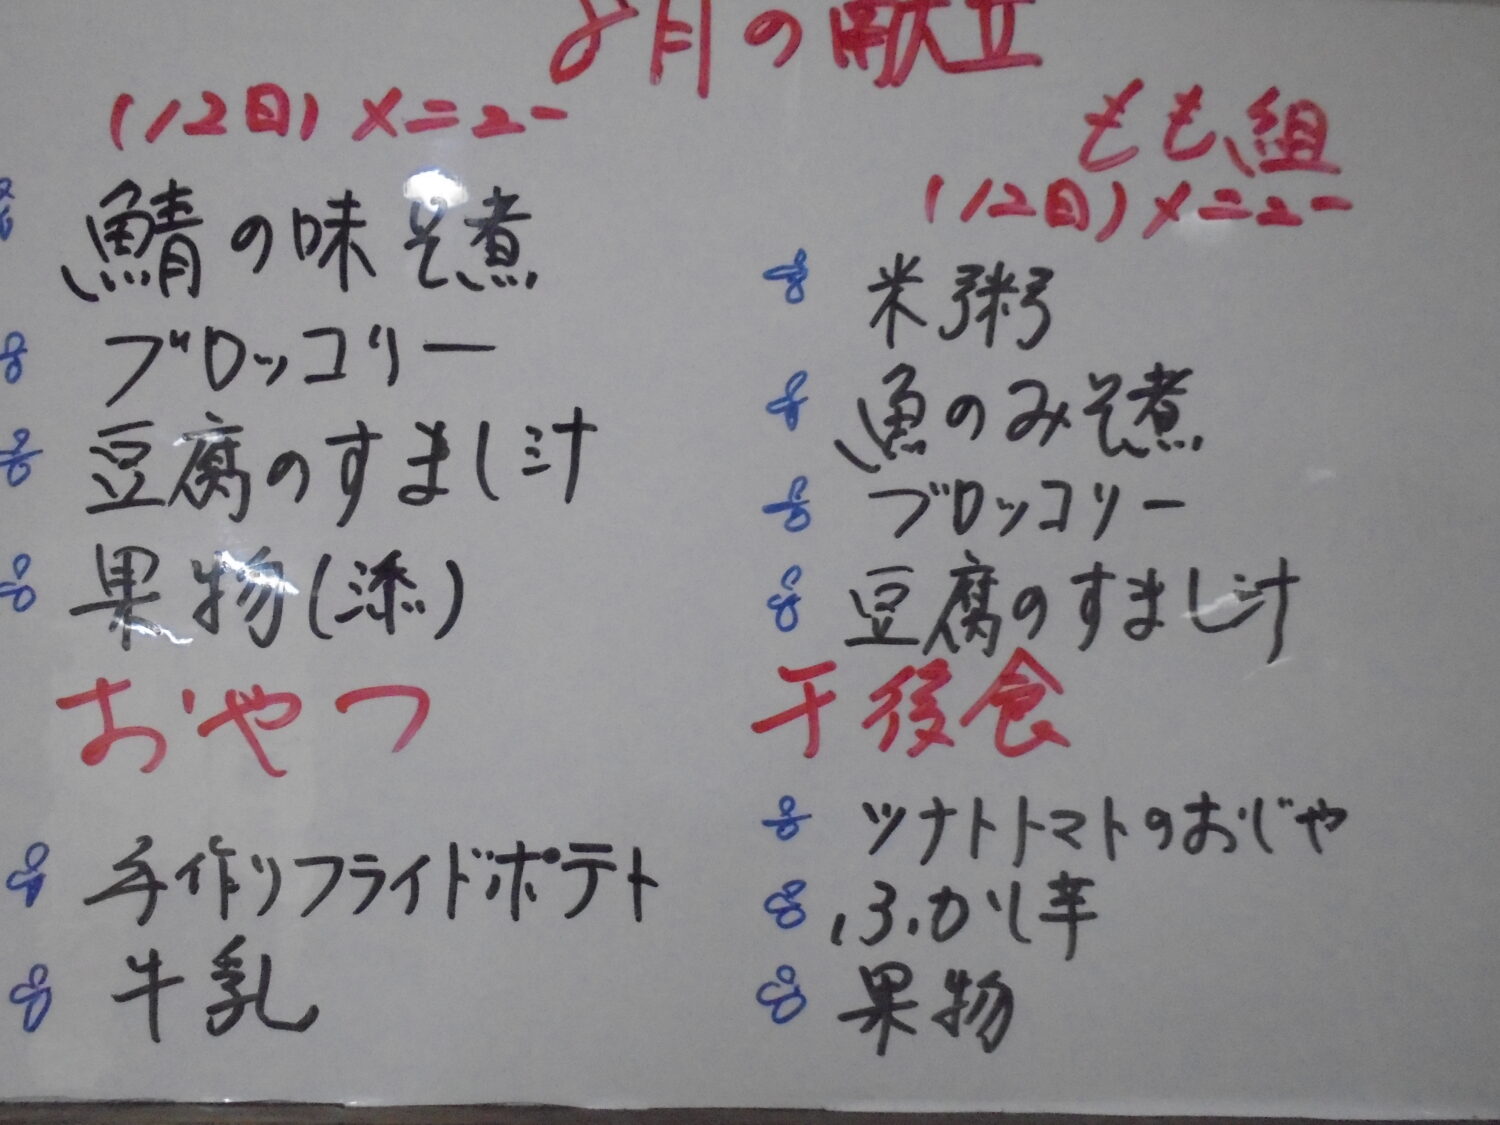 8月の献立
(12日)メニュー
鯖の味そ煮
ブロッコリー
豆腐のすまし汁
果物(添)
おやつ
手作りフライドポテト
牛乳
もも組
(12日)メニュー
米粥
魚のみそ煮
ブロッコリー
豆腐のすまし汁
午後食
ツナトトマトのおじや
ふかし芋
果物